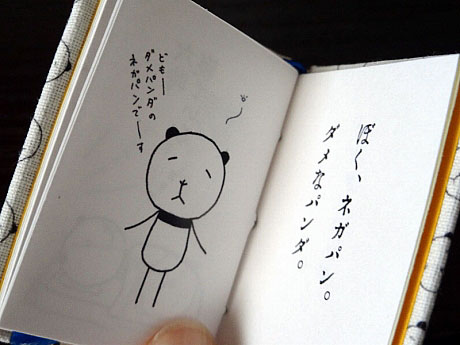 どもー
ダメパンダの
ネガパンでーす
ぼく、ネガパン。
ダメなパンダ。